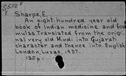 Sharpe, E.
An eight hundred year old
book of Indian medicine and for-
mulas. Translated from the orig-
inal very old Hindi into Gujarati
character and thence into English
London, Luzac, 1937.
135p.